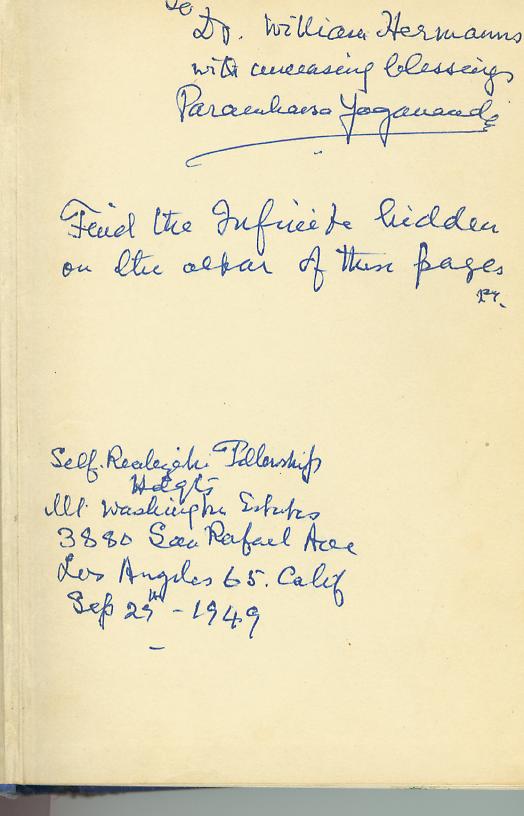 To
Dr. William Hermanns
with unceasing blessings
Paramhansa Yogananda
Find the Infinite hidden
on the altar of these pages
P.Y.
Self-Realization Fellowship
Hdqts
Mt. Washington Estates
3880 San Rafael Ave
Los Angeles 65. Calif
Sep 29th - 1949